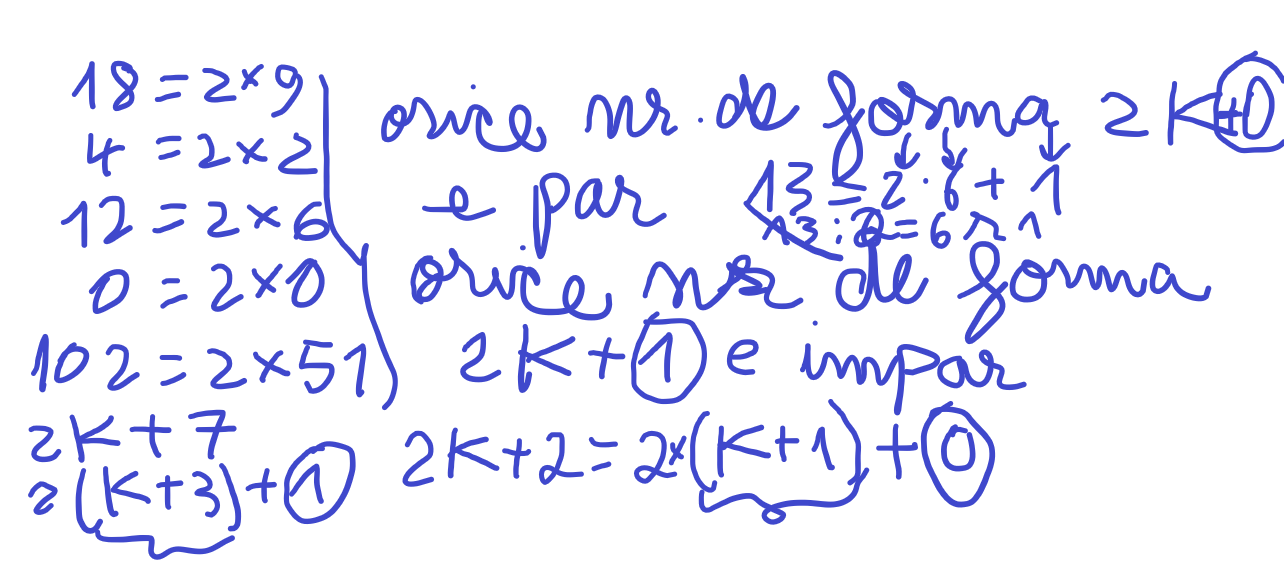 18 = 2×9
4 = 2×2
12 = 2×6
0 = 2×0
102 = 2×51
2K+7
2(K+3)+1
orice nr. de forma 2K+0
e par
13 = 2·6+1
13:2=6 r 1
orice nr de forma
2K+1 e impar
2K+2=2×(K+1)+0